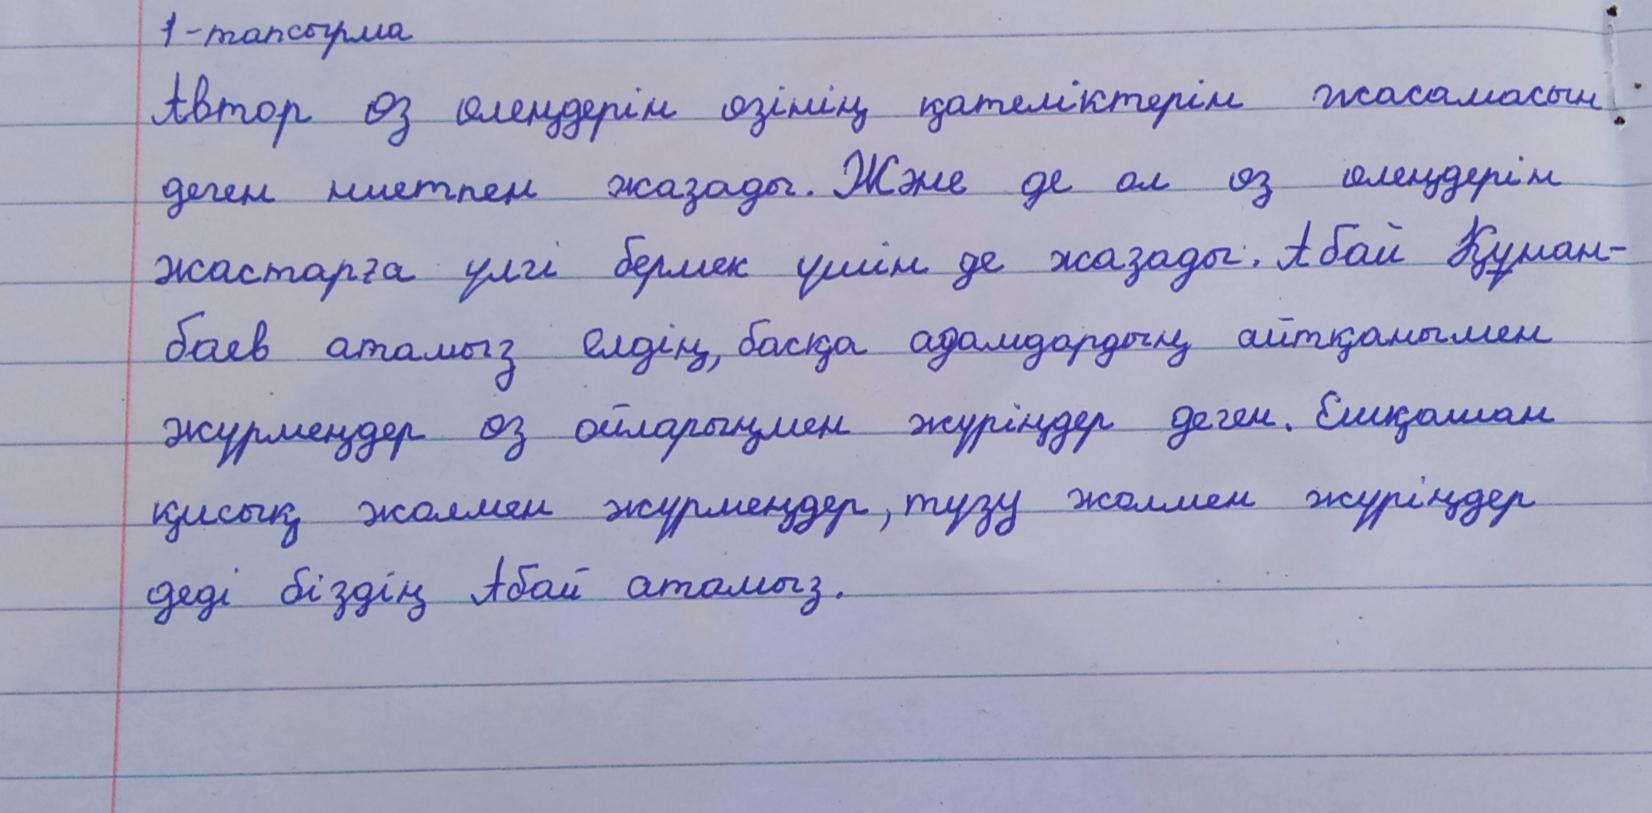 1-тапсырма
Автор өз өлеңдерін өзінің қателіктерін жасамасын
деген ниетпен жазады. Және де ол өз өлеңдерін
жастарға үлгі бермек үшін де жазады. Абай Құнан-
баев атамыз елдің, басқа адамдардың айтқанымен
жүрмеңдер өз ойларыңмен жүріңдер деген. Ешқашан
қисық жолмен жүрмеңдер, түзу жолмен жүріңдер
деді біздің Абай атамыз.